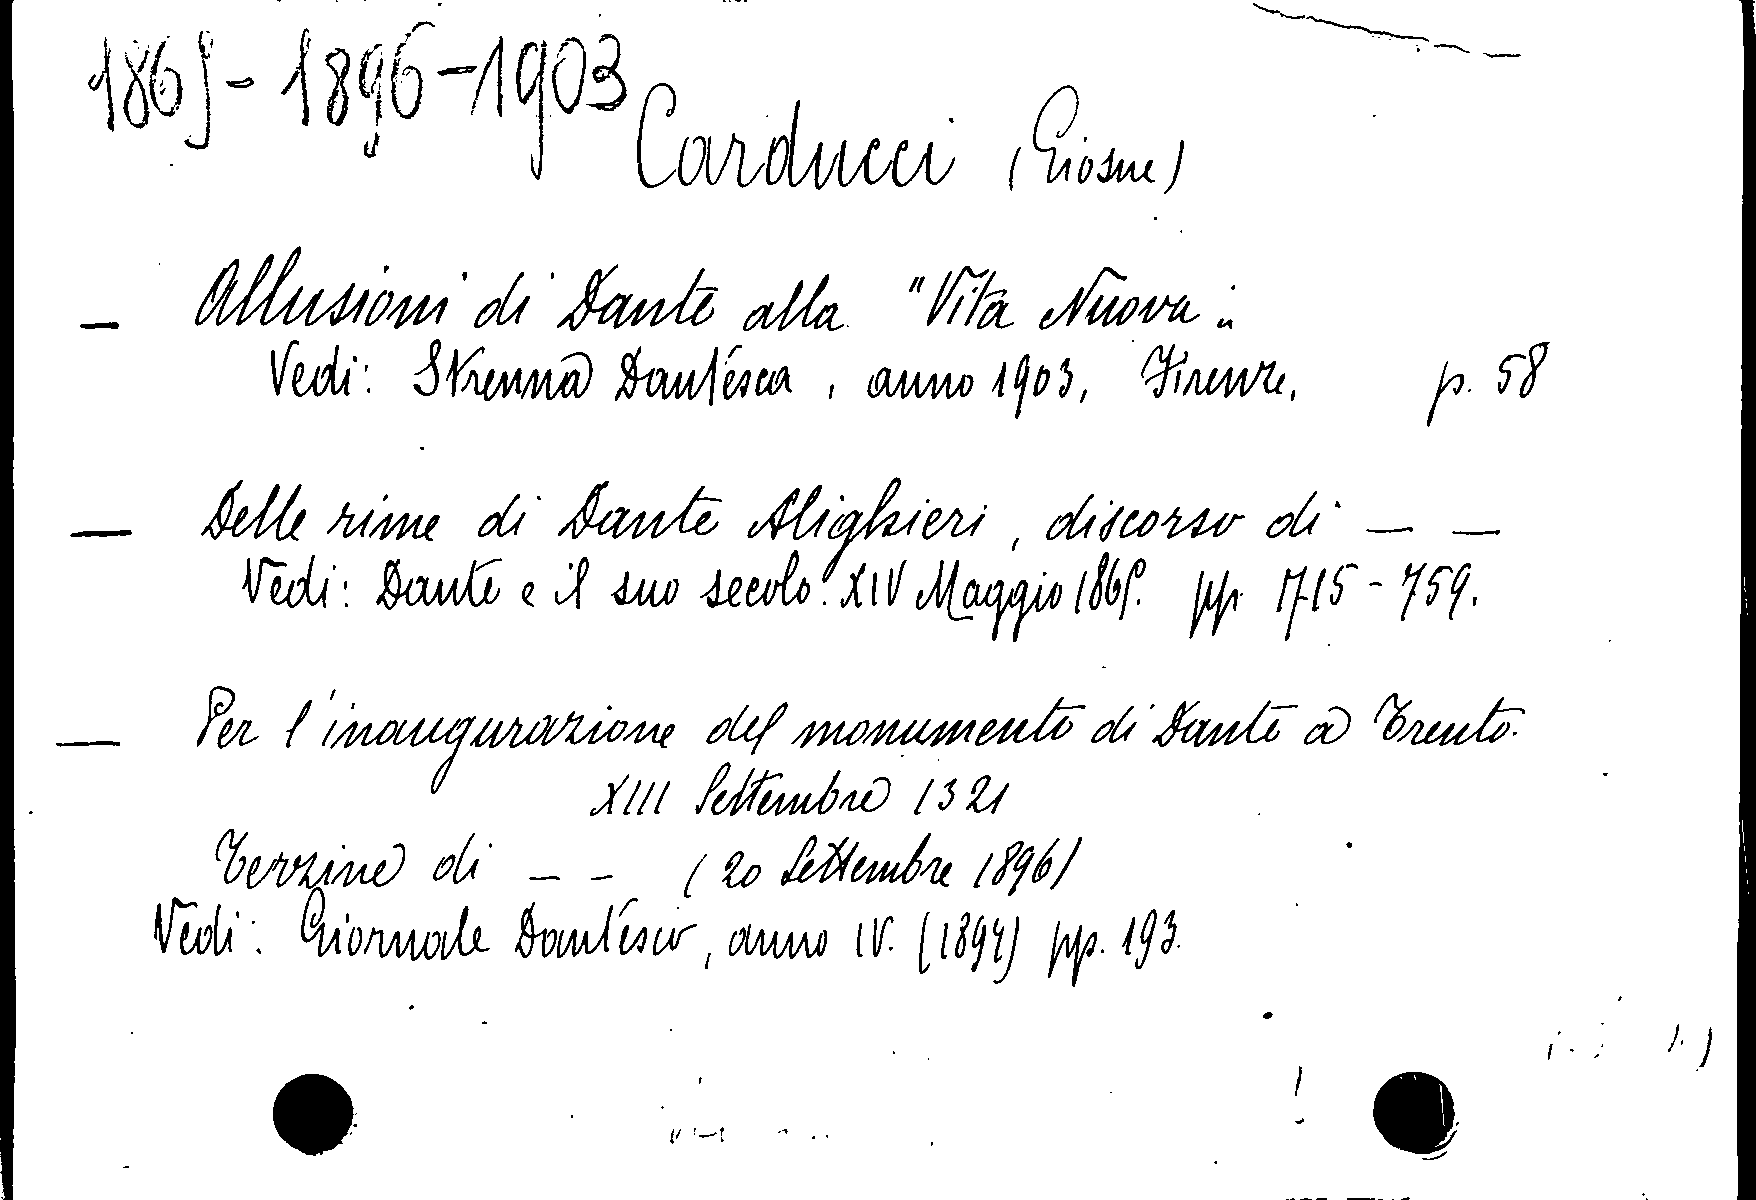 1865 - 1896 - 1903
Carducci (Giosue)
— Allusioni di Dante alla "Vita Nuova„.
Vedi: Strenna Dantesca, anno 1903, Firenze. p. 58
— Delle rime di Dante Alighieri, discorso di — —
Vedi: Dante e il suo secolo. XIV Maggio 1865. pp. 715 - 759.
— Per l'inaugurazione del monumento di Dante a Trento.
XIII Settembre 1321
Terzine di — — (20 Settembre 1896)
Vedi: Giornale Dantesco, anno IV. (1897) pp. 193.